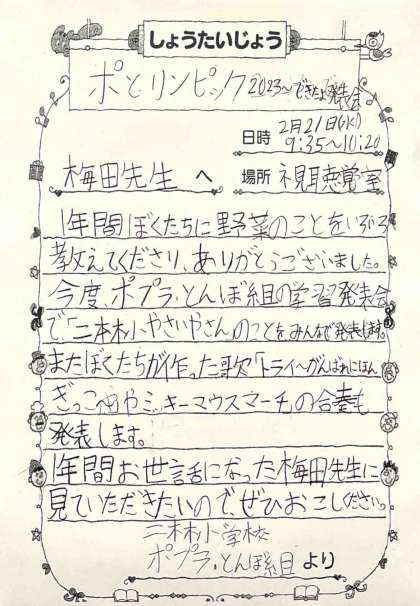 しょうたいじょう
ポとリンピック2023〜できたよ発表会
日時 2月21日(水)
9:35〜10:20
梅田先生へ 場所 視聴覚室
1年間ぼくたちに野菜のことをいろいろ
教えてくださり、ありがとうございました。
今度、ポプラ・とんぼ組の学習発表会
で、「二本木小やさいやさん」のことをみんなで発表します。
またぼくたちが作った歌「トライ〜がんばれにほん
ぎっこ」やミッキーマウスマーチの合奏も
発表します。
1年間お世話になった梅田先生に
見ていただきたいので、ぜひおこしください。
二本木小学校
ポプラ・とんぼ組より